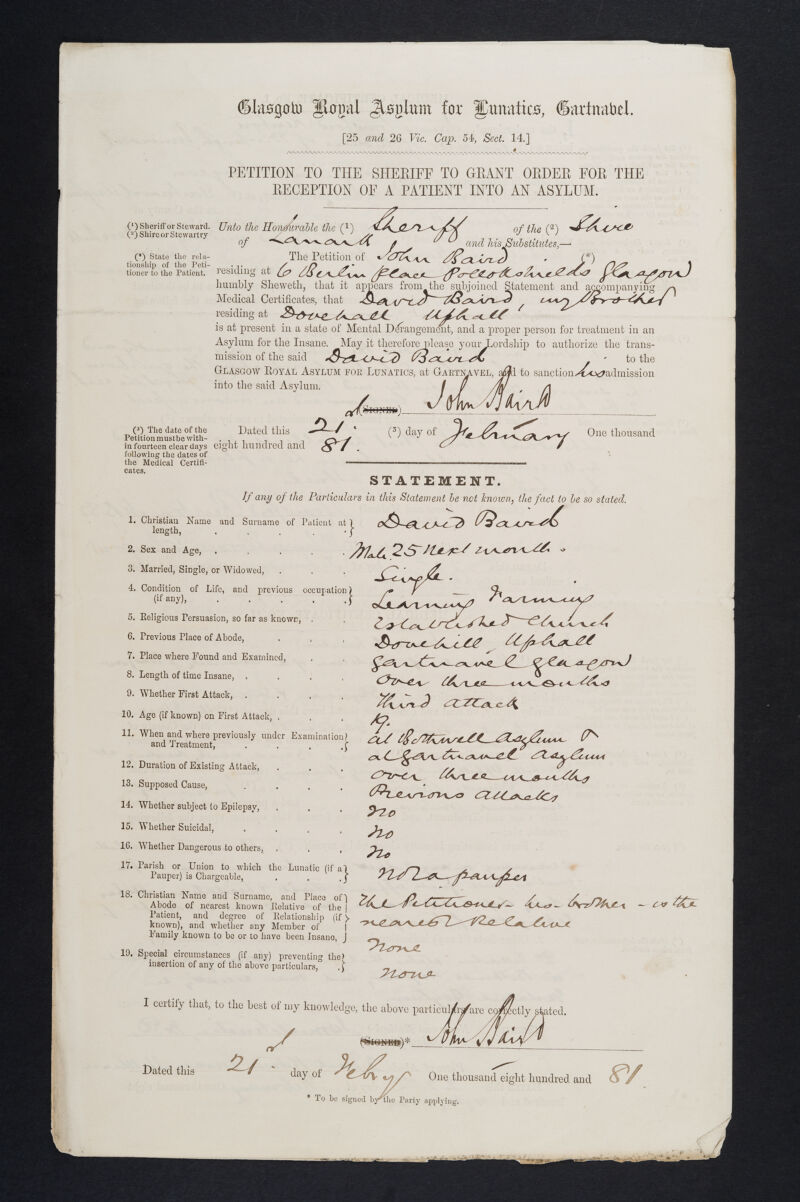 Glasgow Royal Asylum for Lunatics, Gartnabel.
[25 and 26 Vic. Cap. 54, Sect. 14.]
PETITION TO THE SHERIFF TO GRANT ORDER FOR THE
RECEPTION OF A PATIENT INTO AN ASYLUM.
(¹) Sheriff or Steward.
(²) Shire or Stewartry
Unto the Honourable the (¹) Sheriff of the (²) Shire
of Lanark and his Substitutes,—
(⁴) State the rela-
tionship of the Peti-
tioner to the Patient.
The Petition of John Baird (⁴)
residing at 6 Berlin place Pollokshields Glasgow
humbly Sheweth, that it appears from the subjoined Statement and accompanying
Medical Certificates, that David Baird, my Brother
residing at Dovehall Uphall
is at present in a state of Mental Derangement, and a proper person for treatment in an
Asylum for the Insane. May it therefore please your Lordship to authorize the trans-
mission of the said David Baird to the
GLASGOW ROYAL ASYLUM FOR LUNATICS, at GARTNAVEL, and to sanction his admission
into the said Asylum.
(SIGNED) John Baird
(³) The date of the
Petition must be with-
in fourteen clear days
following the dates of
the Medical Certifi-
cates.
Dated this 21st (³) day of February One thousand
eight hundred and 81.
STATEMENT.
If any of the Particulars in this Statement be not known, the fact to be so stated.
1. Christian Name and Surname of Patient at
length, David Baird
2. Sex and Age, Male 25 next month.
3. Married, Single, or Widowed, Single.
4. Condition of Life, and previous occupation
(if any), Learning Farming
5. Religious Persuasion, so far as known, Established Church
6. Previous Place of Abode, Dovehill, Uphall
7. Place where Found and Examined, Gartnavel Glasgow
8. Length of time Insane, Over three months
9. Whether First Attack, Third attack
10. Age (if known) on First Attack, 19.
11. When and where previously under Examination
and Treatment, at Bothwell Asylum &
at Gartnavel Asylum
12. Duration of Existing Attack, Over three months
13. Supposed Cause, Previous attacks
14. Whether subject to Epilepsy, No
15. Whether Suicidal, No
16. Whether Dangerous to others, No
17. Parish or Union to which the Lunatic (if a
Pauper) is Chargeable, Not a pauper
18. Christian Name and Surname, and Place of
Abode of nearest known Relative of the
Patient, and degree of Relationship (if
known), and whether any Member of
Family known to be or to have been Insane,
The Petitioner - his - brother - is the
nearest Relative
None
19. Special circumstances (if any) preventing the
insertion of any of the above particulars, None
I certify that, to the best of my knowledge, the above particulars are correctly stated.
(SIGNED)* John Baird
Dated this 21st day of Febry One thousand eight hundred and 81.
* To be signed by the Party applying.